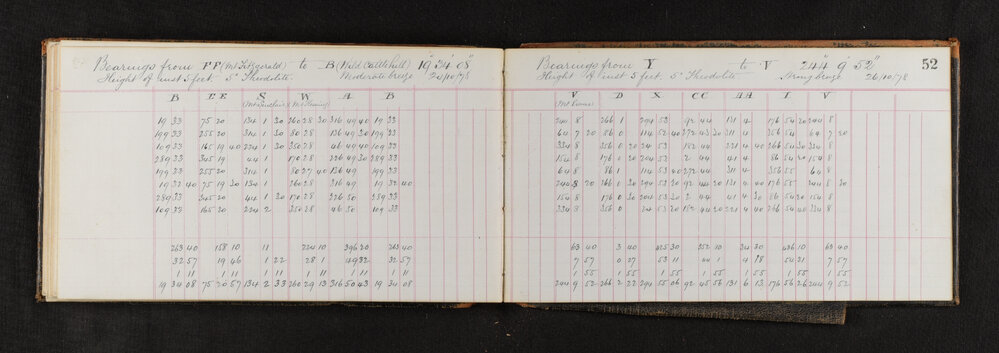 Bearings from FF (Mt Fitzgerald) to B (Wild Cattle hill) 19° 34' 08"
Height of inst 5 feet 5" Theodolite Moderate breeze 24/10/78
B EE S W A B
19 33 75 20 134 1 30 260 28 30 316 49 40 19 33
199 33 255 20 314 1 30 80 28 136 49 30 199 33
109 33 165 19 40 224 1 30 350 28 46 49 40 109 33
289 33 345 19 44 1 170 28 226 49 30 289 33
199 33 255 20 314 1 80 27 40 136 49 199 33
19 32 40 75 19 30 134 1 260 28 316 49 19 32 40
289 33 345 20 44 1 30 170 28 226 50 289 33
109 33 165 20 224 2 350 28 46 50 109 33
263 40 158 10 11 224 10 396 20 263 40
32 57 19 46 1 22 28 1 49 32 32 57
1 11 1 11 1 11 1 11 1 11 1 11
19 34 08 75 20 57 134 2 33 260 29 13 316 50 43 19 34 08
Bearings from Y to V 244° 9' 52" 52
Height of inst 5 feet 5" Theodolite Strong breeze 26/10/78
V D X CC AA I V
244 8 266 1 294 53 92 44 131 4 176 54 20 244 8
64 7 20 86 0 114 52 40 272 43 30 311 4 356 54 64 7 20
334 8 356 0 20 24 53 182 44 221 4 40 266 54 30 334 8
154 8 176 1 20 204 52 2 44 41 4 86 54 20 154 8
64 8 86 1 114 53 40 272 44 311 4 356 55 64 8
244 8 20 266 1 30 294 53 30 92 44 20 131 4 40 176 55 244 8 20
154 8 176 0 30 204 53 30 2 44 41 4 30 86 54 20 154 8
334 8 356 0 24 53 20 182 44 20 221 4 40 266 54 40 334 8
63 40 3 40 425 30 352 10 34 30 436 10 63 40
7 57 0 27 53 11 44 1 4 18 54 31 7 57
1 55 1 55 1 55 1 55 1 55 1 55 1 55
244 9 52 266 2 22 294 55 06 92 45 56 131 6 13 176 56 26 244 9 52